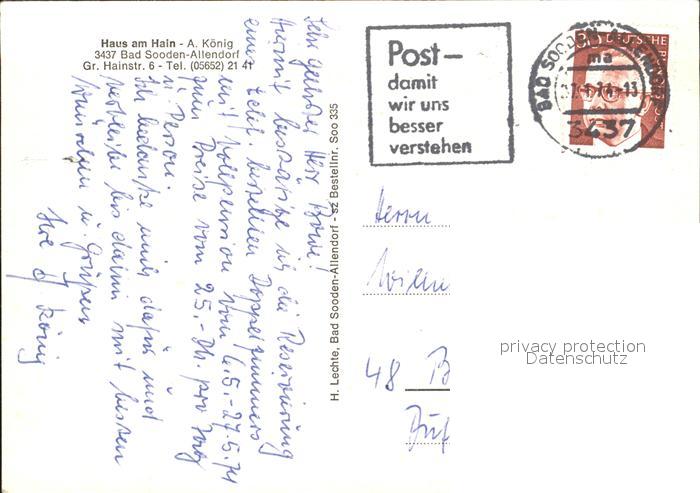 Haus am Hain - A. König
3437 Bad Sooden-Allendorf
Gr. Hainstr. 6 - Tel. (05652) 21 41
Sehr geehrter Herr
Hiermit bestätige ich die Reservierung
eines telef. bestellten Doppelzimmers
mit Halbpension vom 6.5.-27.5.74
zum Preise von 25.- DM. pro Tag
u. Person.
Ich bedanke mich dafür und
verbleibe bis dahin mit besten
Wünschen u. Grüßen
Ihre A. König
H. Lechte, Bad Sooden-Allendorf - sz Bestellnr. Soo 335
Post-
damit
wir uns
besser
verstehen
BAD SOODEN-ALLENDORF
ma
-13
3437
DEUTSCHE
Herrn
48 B
privacy protection
Datenschutz